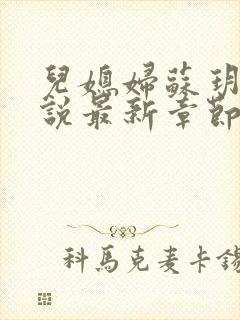 兒媳婦蘇玥
說最新章節
科馬克麦卡錫